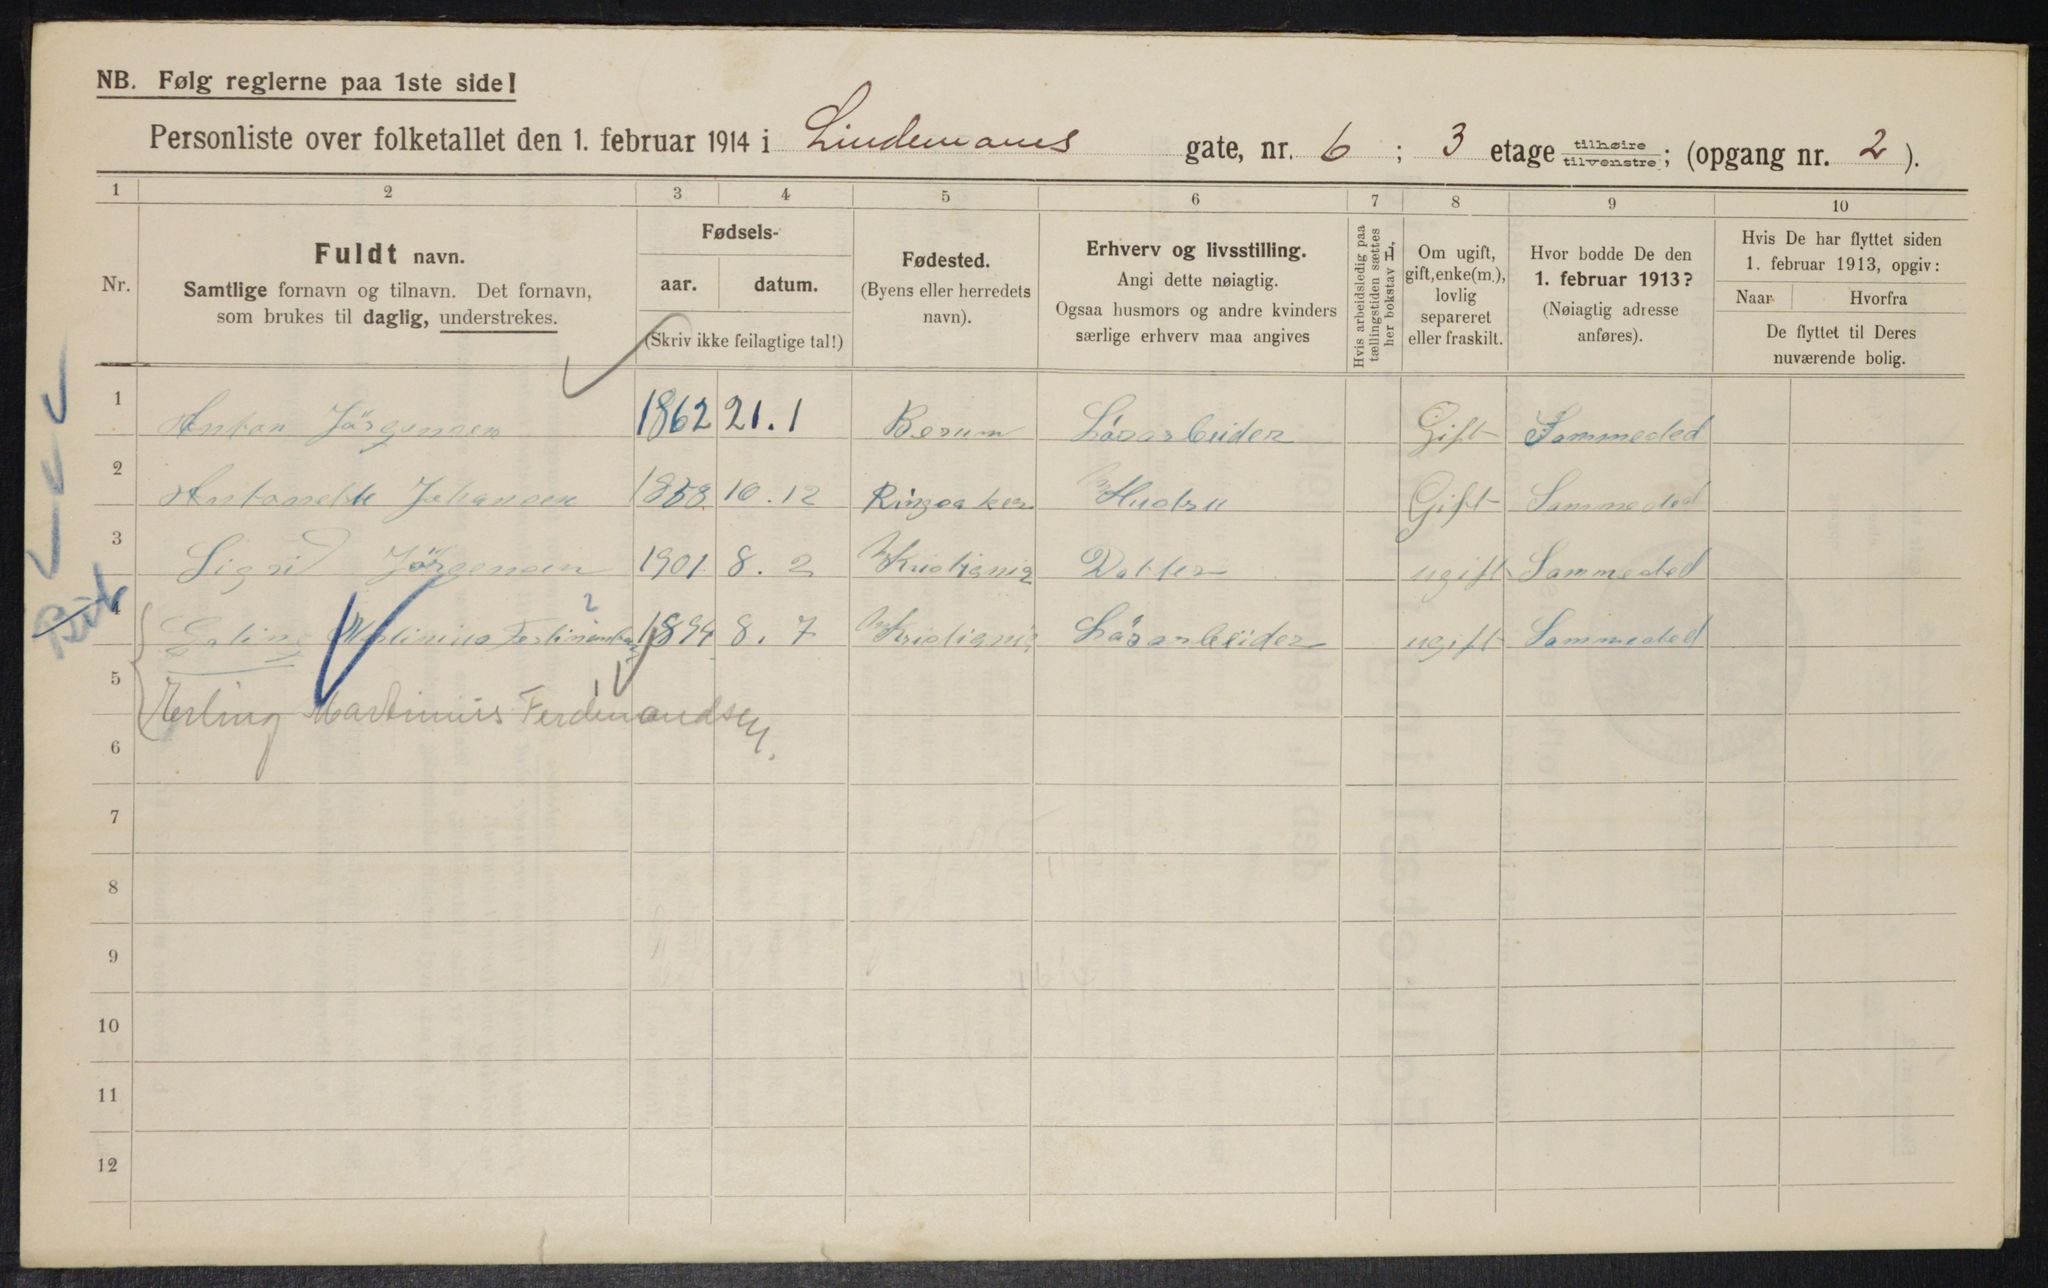 NB. Følg reglerne paa 1ste side!
Personliste over folketallet den 1. februar 1914 i Lindemans gate, nr. 6 ; 3 etage tilhøire tilvenstre; (opgang nr. 2 ).
1 2 3 4 5 6 7 8 9 10
Nr.
Fuldt navn.
Samtlige fornavn og tilnavn. Det fornavn,
som brukes til daglig, understrekes.
Fødsels-
aar. datum.
(Skriv ikke feilagtige tal!)
Fødested.
(Byens eller herredets
navn).
Erhverv og livsstilling.
Angi dette nøiagtig.
Ogsaa husmors og andre kvinders
særlige erhverv maa angives
Hvis arbeidsledig paa
tællingstiden sættes
her bokstav L,
Om ugift,
gift, enke(m.),
lovlig
separeret
eller fraskilt.
Hvor bodde De den
1. februar 1913?
(Nøiagtig adresse
anføres).
Hvis De har flyttet siden
1. februar 1913, opgiv:
Naar Hvorfra
De flyttet til Deres
nuværende bolig.
1 Anton Jörgensen 1862 21.1 Berum Lösarbeider Gift Sammested
2 Antonette Johansen 1858 10.12 Ringsaker Hustru Gift Sammested
3 Sigrid Jörgensen 1901 8.2 Kristiania Datter ugift Sammested
4 Martinius 1894 8.7 Kristiania Lösarbeider ugift Sammested
5 Herling Martinius Ferdinandsen.
6
7
8
9
10
11
12